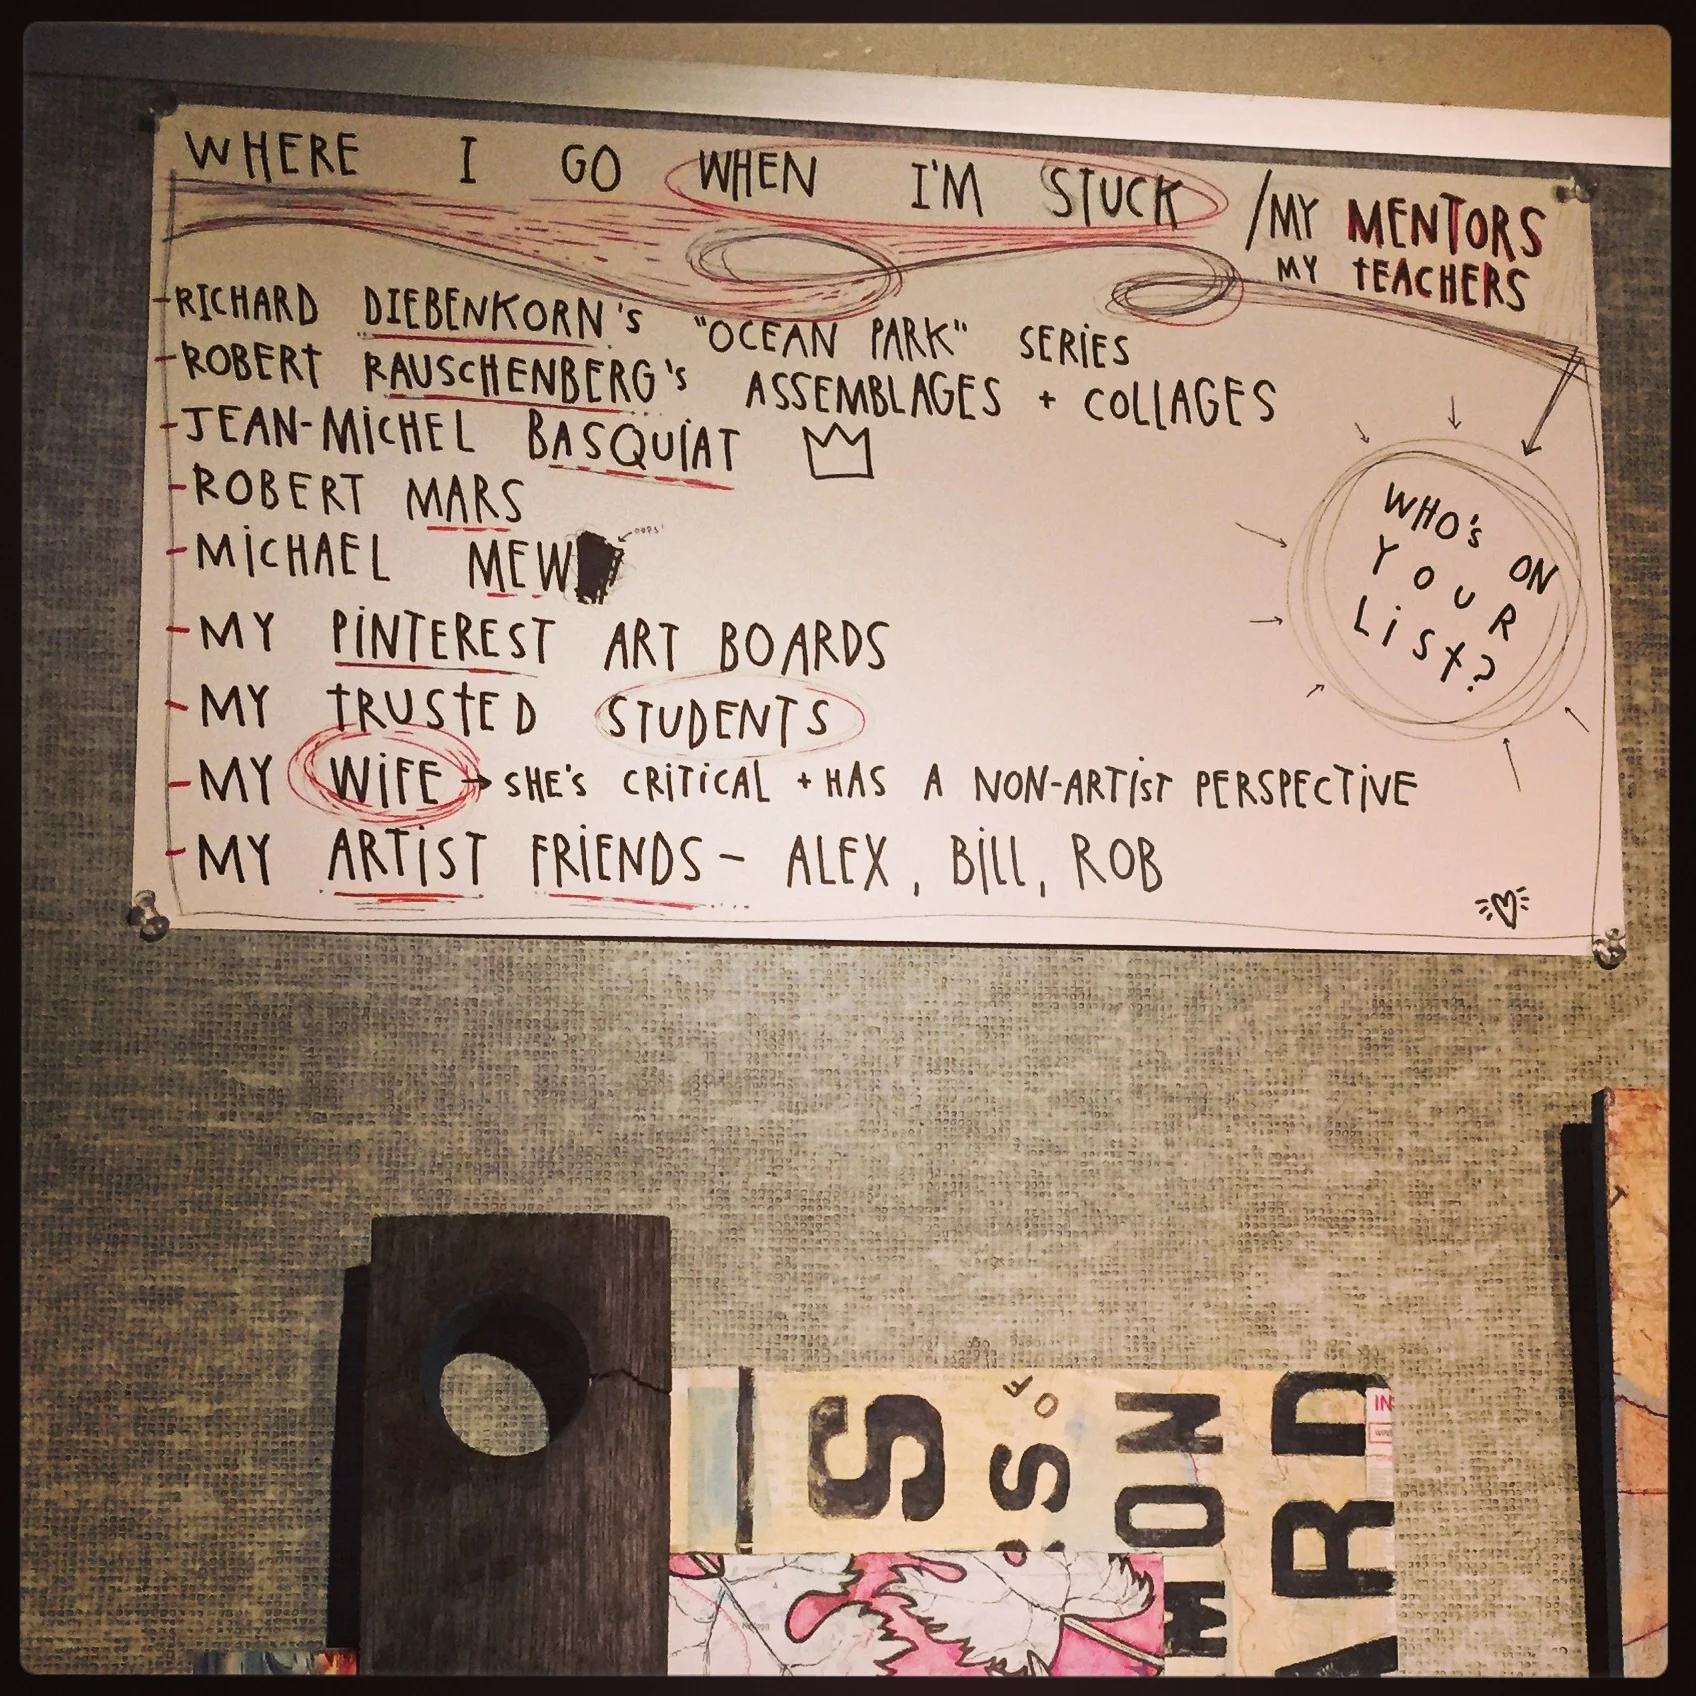 WHERE I GO WHEN I'M STUCK / MY MENTORS
MY TEACHERS
-RICHARD DIEBENKORN's "OCEAN PARK" SERIES
-ROBERT RAUSCHENBERG's ASSEMBLAGES + COLLAGES
-JEAN-MICHEL BASQUIAT
-ROBERT MARS
-MICHAEL MEW
oops!
-MY PINTEREST ART BOARDS
-MY TRUSTED STUDENTS
-MY WIFE → SHE'S CRITICAL + HAS A NON-ARTIST PERSPECTIVE
-MY ARTIST FRIENDS - ALEX, BILL, ROB
WHO'S ON
YOUR
LIST?
S
S OF
MON
ARD
IN